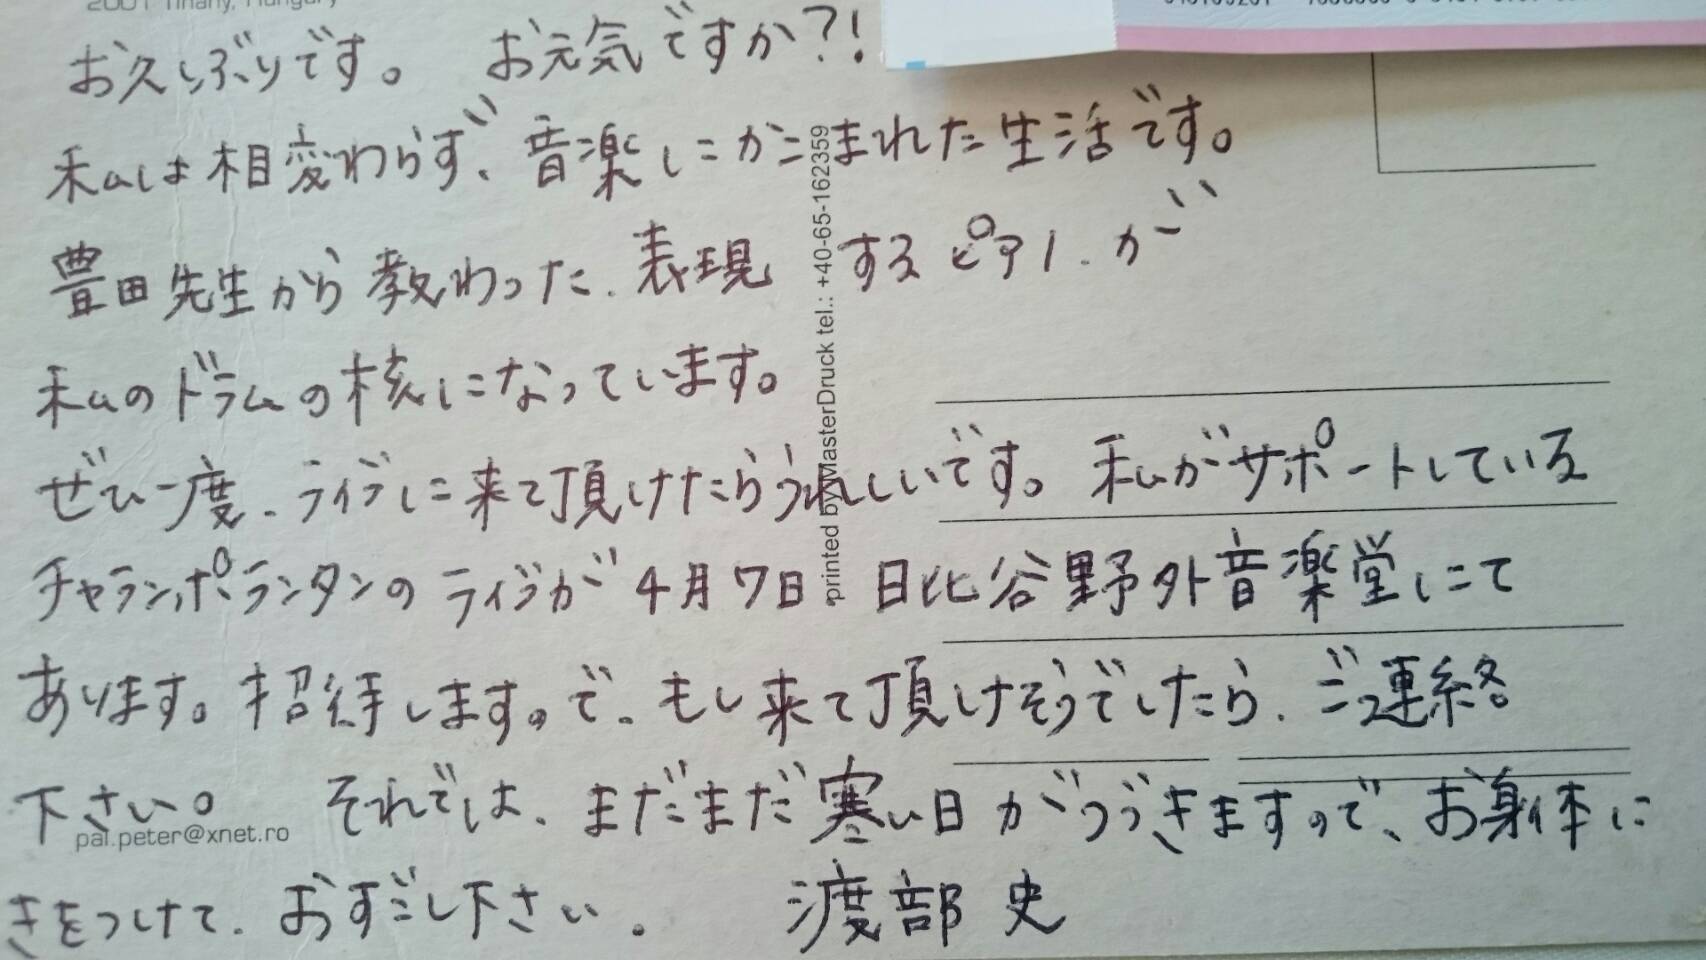 2001 Tihany, Hungary
お久しぶりです。 お元気ですか?!
私は相変わらず、音楽にかこまれた生活です。
豊田先生から教わった、表現するピアノ、が
私のドラムの核になっています。
ぜひ一度、ライブに来て頂けたらうれしいです。私がサポートしている
チャランポランタンのライブが4月7日 日比谷野外音楽堂にて
あります。招待しますので、もし来て頂けそうでしたら、ご連絡
下さい。 それでは、まだまだ寒い日がつづきますので、お身体に
きをつけて、おすごし下さい。 渡部 史
printed by MasterDruck tel.: +40-65-162359
pal.peter@xnet.ro